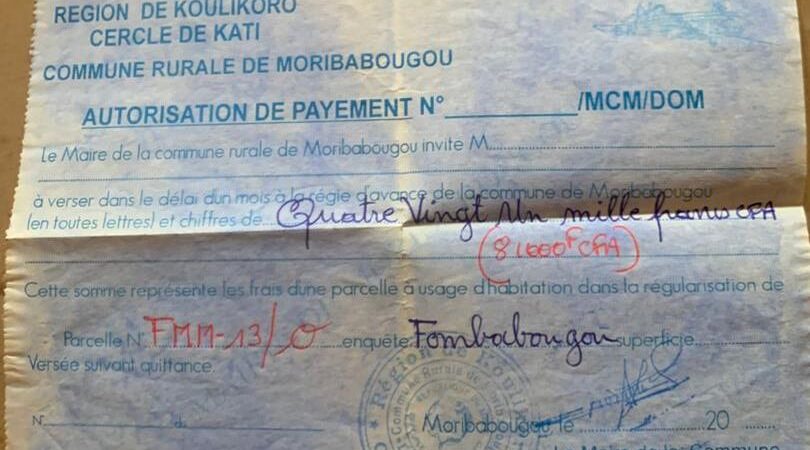 REGION DE KOULIKORO
CERCLE DE KATI
COMMUNE RURALE DE MORIBABOUGOU
AUTORISATION DE PAYEMENT N°__________/MCM/DOM
Le Maire de la commune rurale de Moribabougou invite M...............
à verser dans le délai dun mois à la régie d'avance de la commune de Moribabougou
(en toutes lettres) et chiffres de... Quatre Vingt Un mille francs CFA
(81000F CFA)
Cette somme représente les frais dune parcelle à usage d'habitation dans la régularisation de
Parcelle N° FMM-13/0 enquête Fombabougou superficie..........
Versée suivant quittance.
N°
Moribabougou le ............ 20 ........
Région de
Commune Rurale de
Maire de la Commune